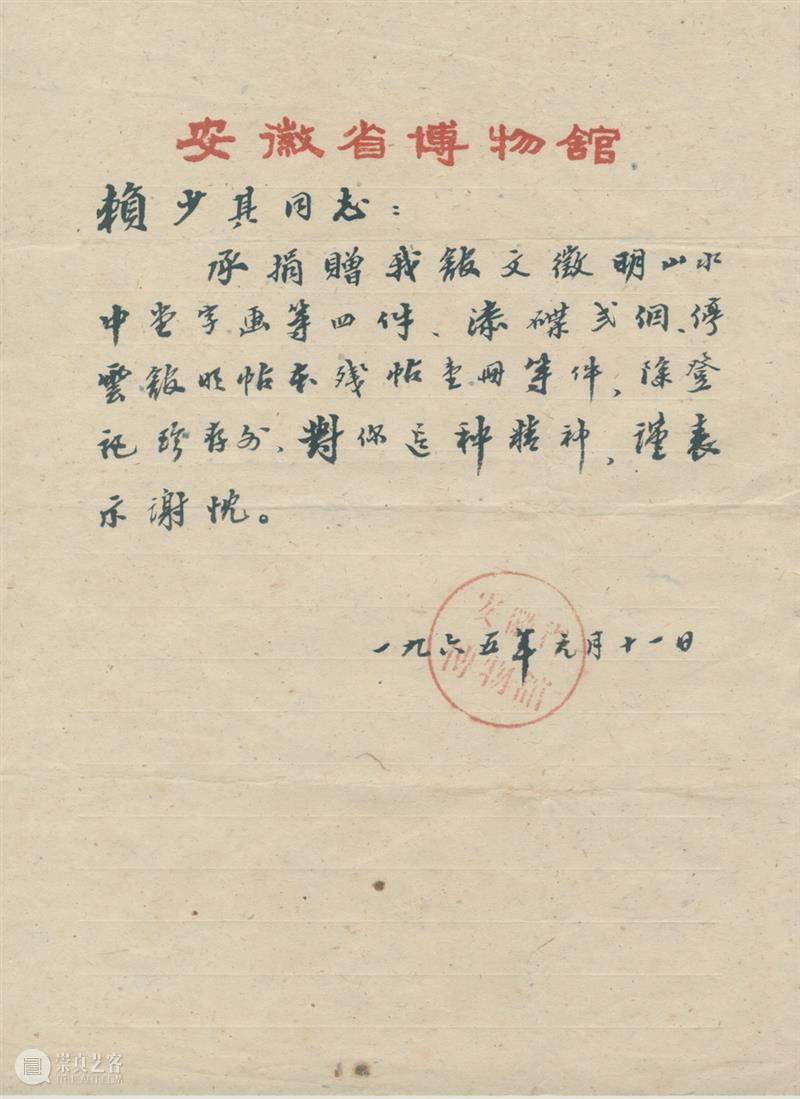 安徽省博物館
賴少其同志：
承捐贈我館文徵明山水
中堂字画等四件、漆碟弍個、停
雲館明帖本残帖壹冊等件，除登
记珍存外，對你这种精神，谨表
示谢忱。
一九六五年元月十一日
安徽省
博物館
崇真艺客